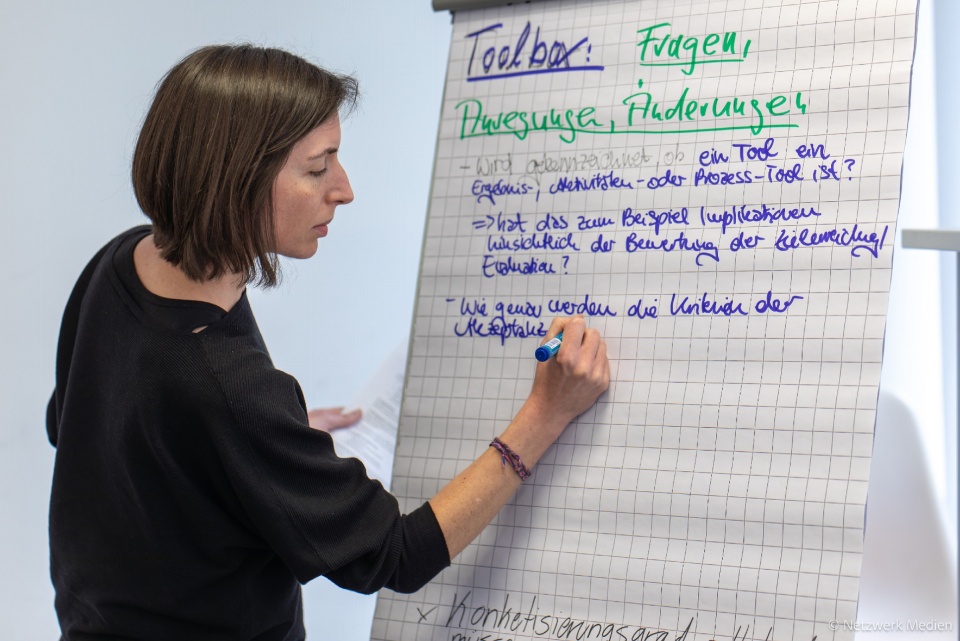 Toolbox: Fragen,
Anregungen, Änderungen
- Wird gekennzeichnet, ob ein Tool ein
Ergebnis-, Aktivitäten- oder Prozess-Tool ist?
=> hat das zum Beispiel Implikationen
hinsichtlich der Bewertung der Zielerreichung/
Evaluation?
- Wie genau werden die Kriterien der
Akzeptanz
x Konketisierungsgrad
© Netzwerk Medien